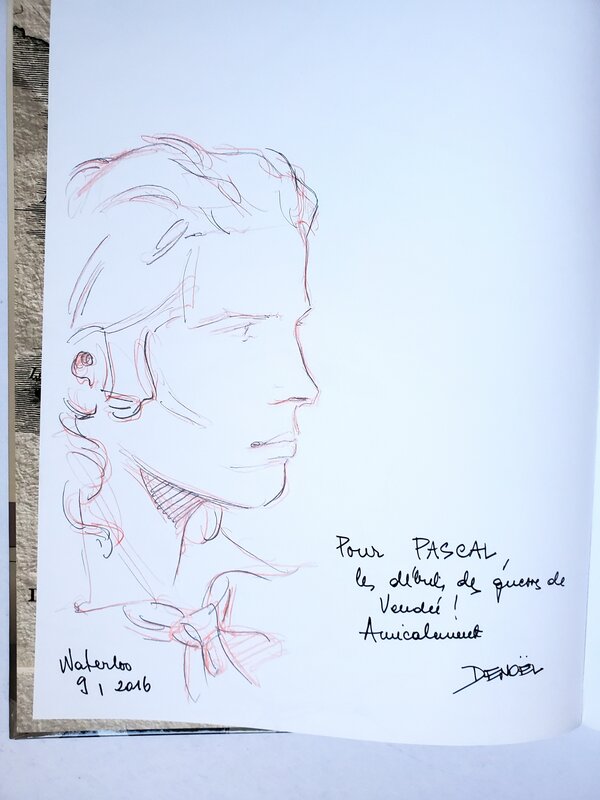 Pour PASCAL,
les débuts des guerres de
Vendée !
Amicalement
DENOËL
Waterloo
9 | 2016